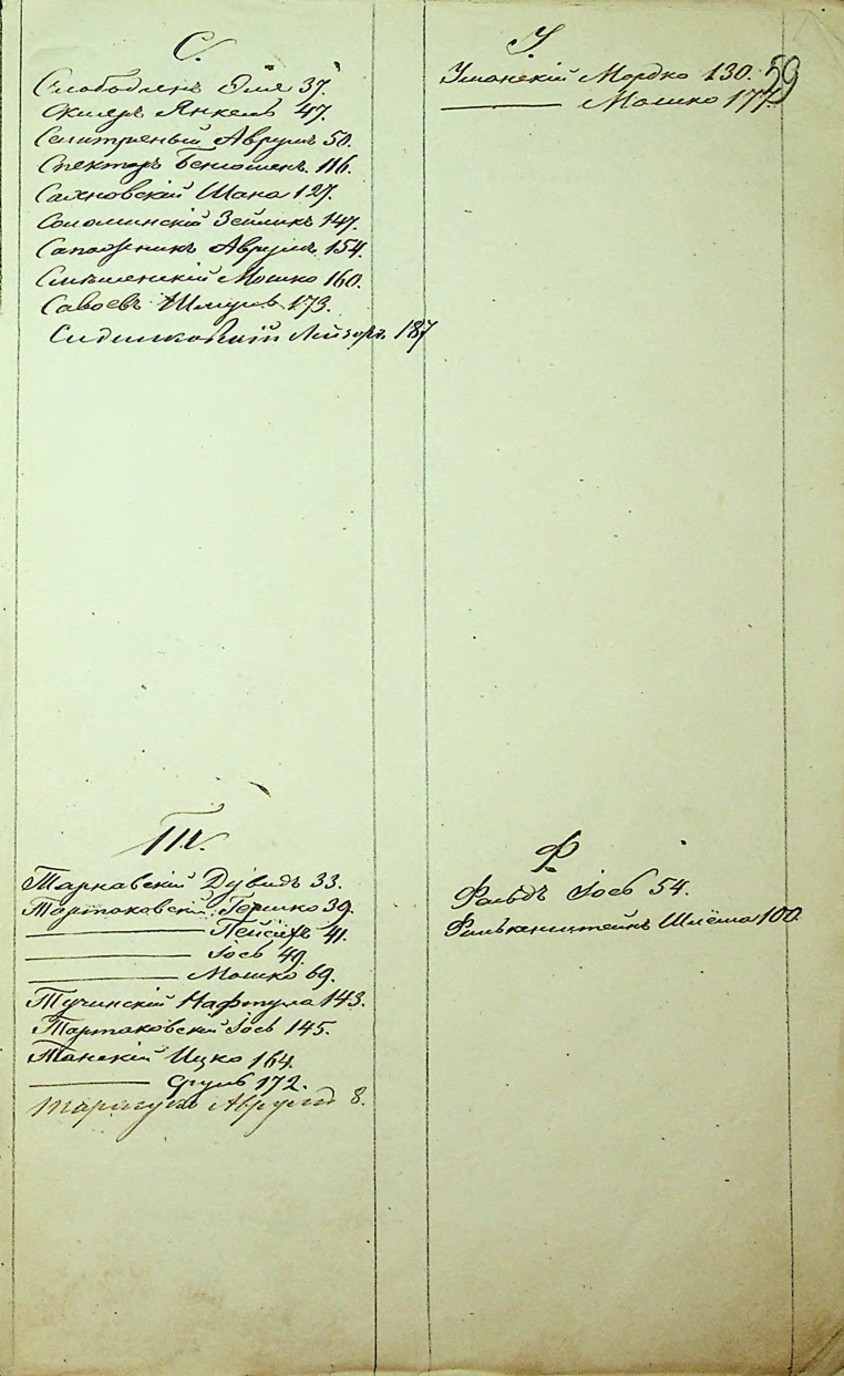 С.
Слободянъ Эля 37.
Склеръ Янкель 47.
Селитреный Аврумъ 50.
Спекторъ Беньоменъ. 116.
Сахновскій Шана 127.
Соломинскій Зейликъ 147.
Сапожникъ Аврумъ 154.
Мошко 160.
Савоевъ Шмуль 173.
Лейзоръ 187
Т.
Тарнавскій Дувидъ 33.
Тартаковскій Гершко 39.
Пейсахъ 41.
Іось 49.
Мошко 69.
Тучинскій Нафтула 143.
Тартаковскій Іось 145.
Танскій Ицко 164.
Срулъ 172.
Аврумъ 8.
У.
59
Уманскій Мордко 130.
Мошко 177.
Ф.
Фальдъ Іось 54.
Филькенштейнъ Шлёма 100.